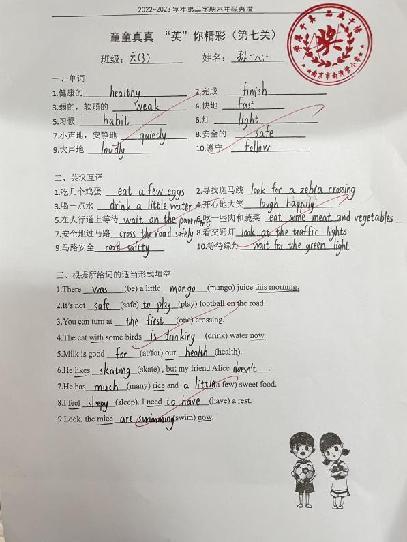 2022-2023学年第二学期六年级英语
童童真真 “英”你精彩（第七关）
班级：六(3) 姓名：
一、单词
1.健康的 healthy 2.完成 finish
3.弱的，较弱的 weak 4.快地 fast
5.习惯 habit 6.灯 light
7.小声地，安静地 quietly 8.安全的 safe
9.大声地 loudly 10.遵守 follow
二、英汉互译
1.吃几个鸡蛋 eat a few eggs 2.寻找斑马线 look for a zebra crossing
3.喝一点水 drink a little water 4.开心地大笑 laugh happily
5.在人行道上等待 wait on the pavement 6.吃一些肉和蔬菜 eat some meat and vegetables
7.安全地过马路 cross the road safely 8.看交通灯 look at the traffic lights
9.马路安全 road safety 10.等待绿灯 wait for the green light
三、根据所给词的适当形式填空
1.There was (be) a little mango (mango) juice this morning.
2.It's not safe (safe) to play (play) football on the road.
3.You can turn at the first (one) crossing.
4.The cat with some birds is drinking (drink) water now.
5.Milk is good for (after) our health (health).
6.He likes skating (skate), but my friend Alice doesn't.
7.He has much (many) rice and a little (a few) sweet food.
8.I feel sleepy (sleep). I need to have (have) a rest.
9.Look, the mice are swimming (swim) now.